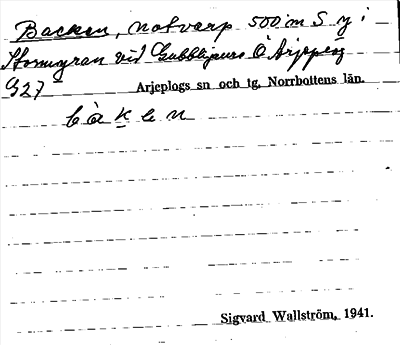 Backen, notvarp 500 m S y i
Stormyran vid Gubblijaure Ö Arjeplog
927
Arjeplogs sn och tg, Norrbottens län.
bàken
Sigvard Wallström, 1941.